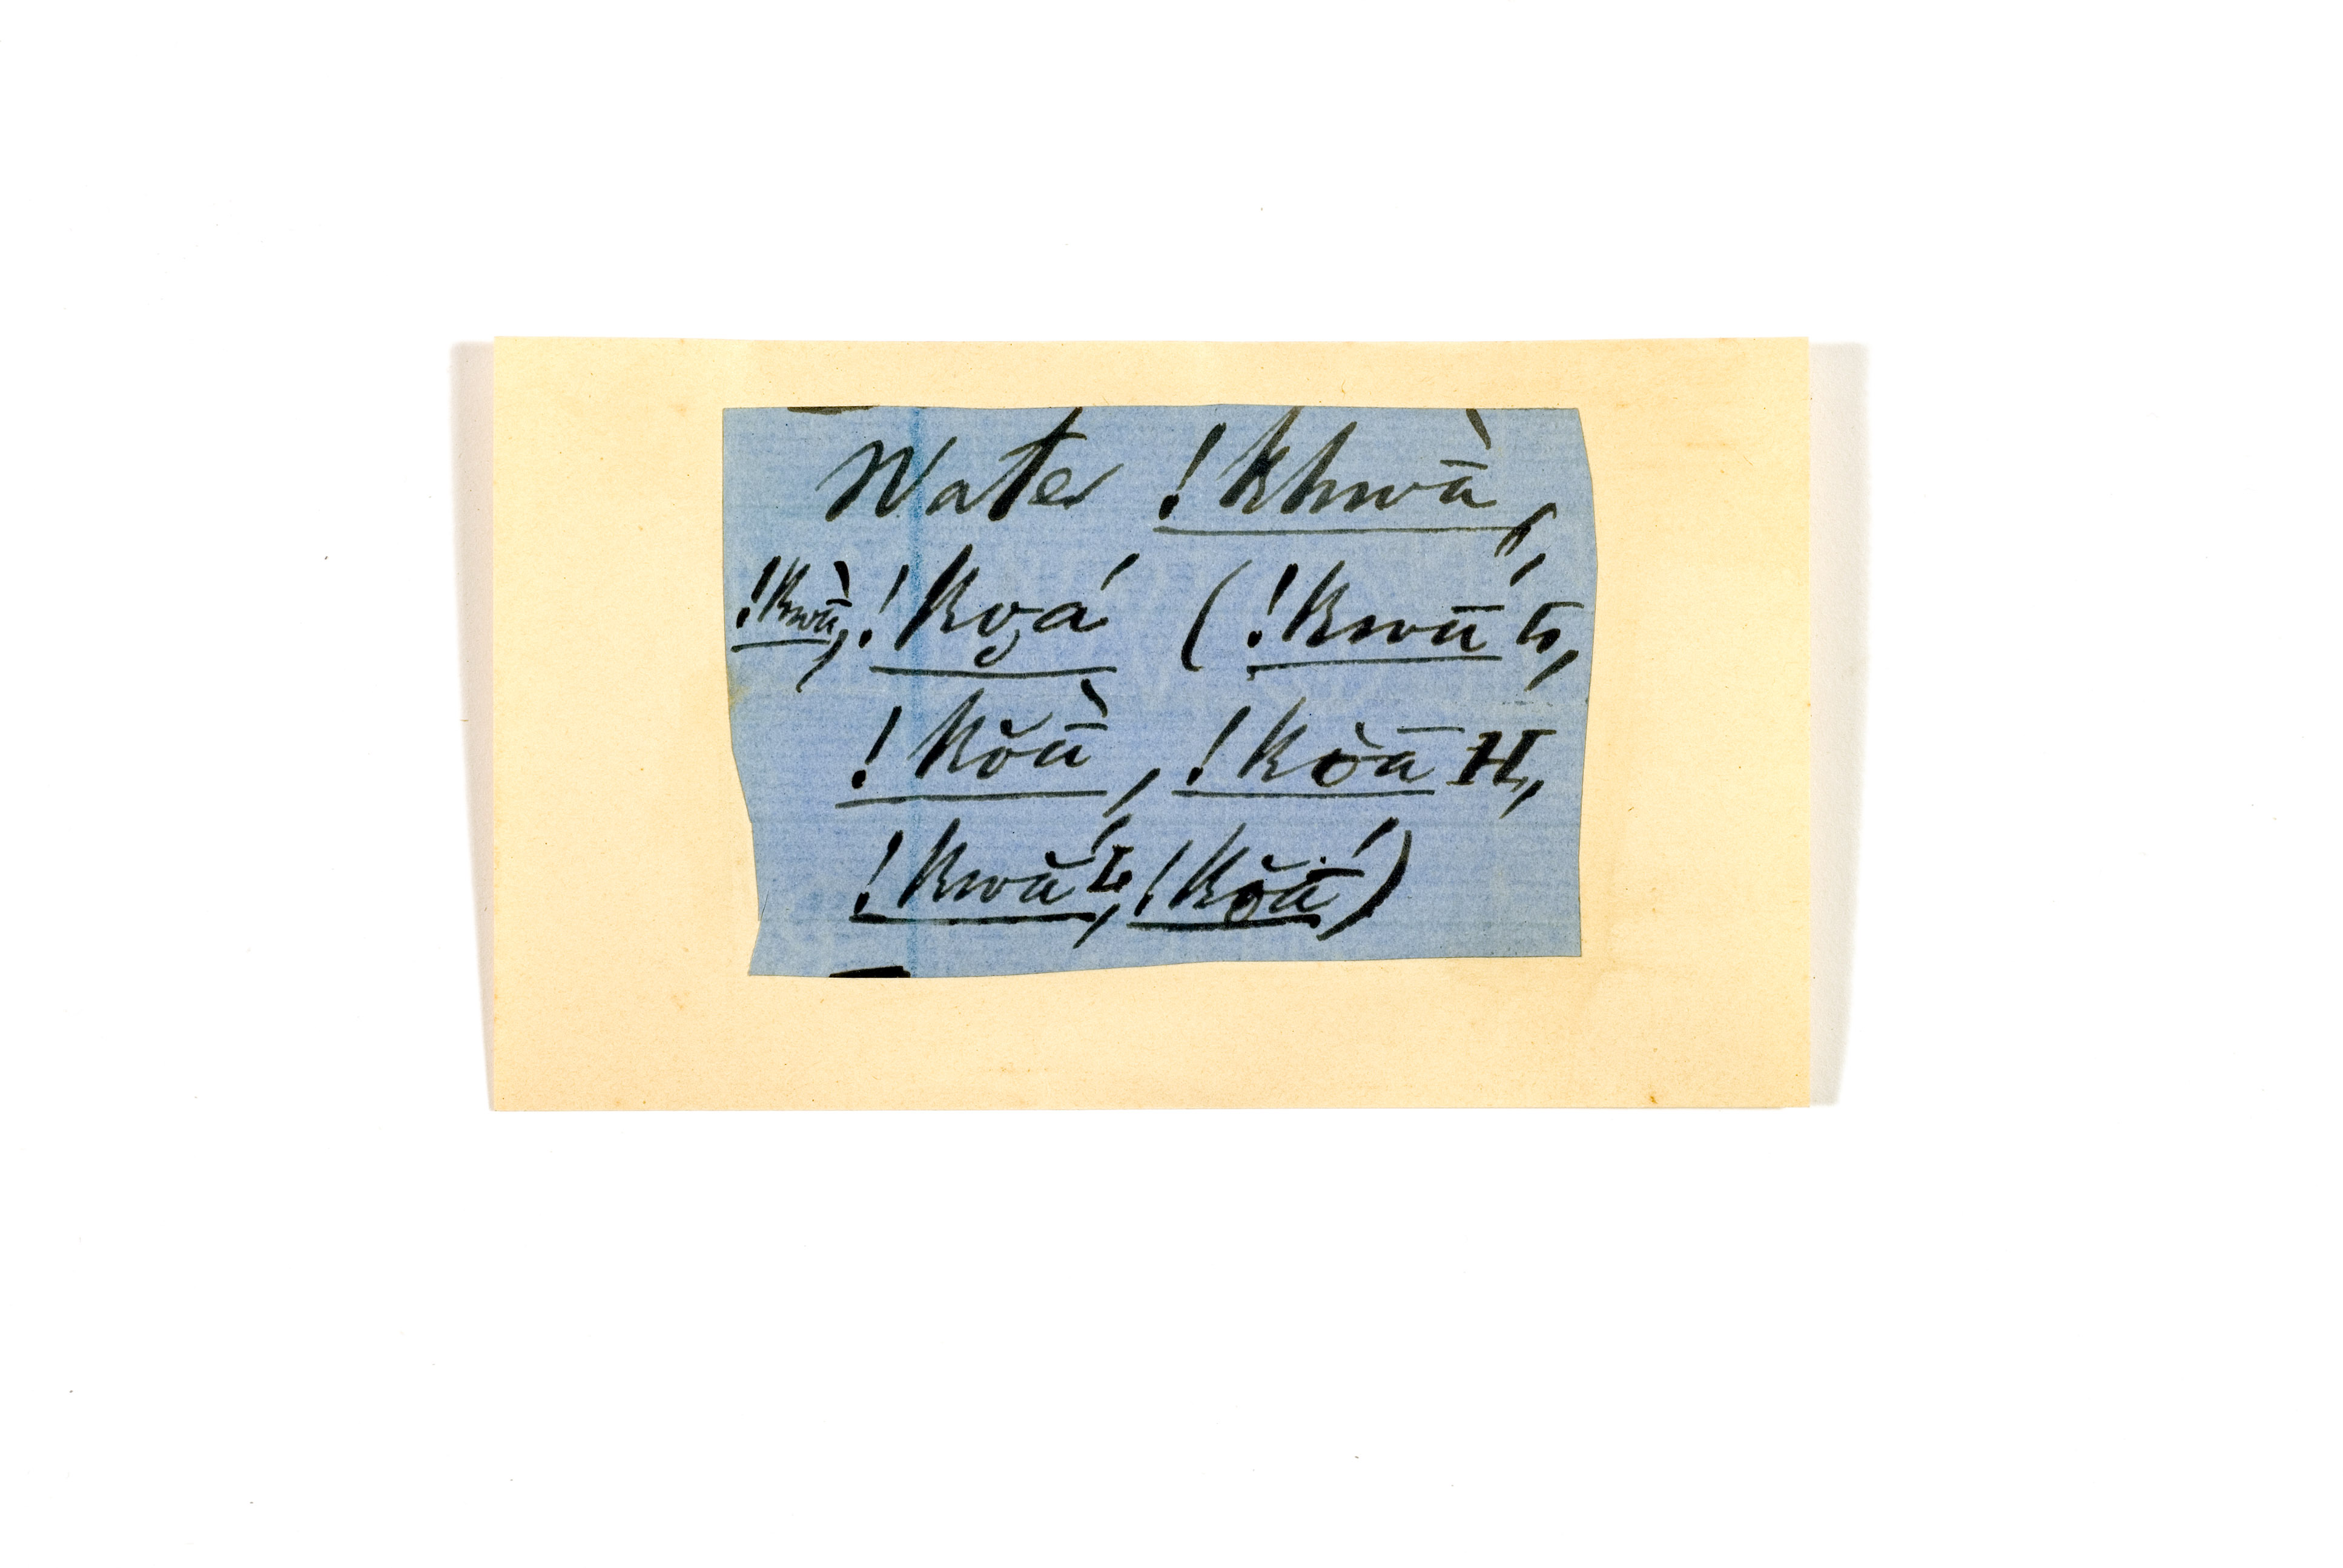 Water !khwā̀,
!kwā̀, !ko̧á (!kwā G,
!kŏā̀, !kòā H,
!kwā́ L, !kŏ̧ā́)